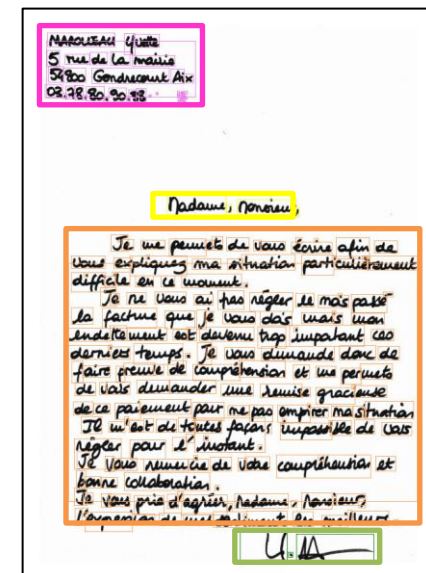 MAROLLEAU Yvette
5 rue de la mairie
54800 Gondrecourt Aix
03.78.80.90.88
Madame, Monsieur,
Je me permets de vous écrire afin de
vous expliquez ma situation particulièrement
difficile en ce moment.
Je ne vous ai pas régler le mois passé
la facture que je vous dois mais mon
endettement est devenu trop important ces
derniers temps. Je vous demande donc de
faire preuve de compréhension et me permets
de vous demander une remise gracieuse
de ce paiement pour ne pas empirer ma situation
Il m'est de toutes façons impossible de vous
régler pour l'instant.
Je vous remercie de votre compréhension et
bonne collaboration.
Je vous prie d'agréer, Madame, Monsieur,
l'expression de mes sentiments les meilleurs.